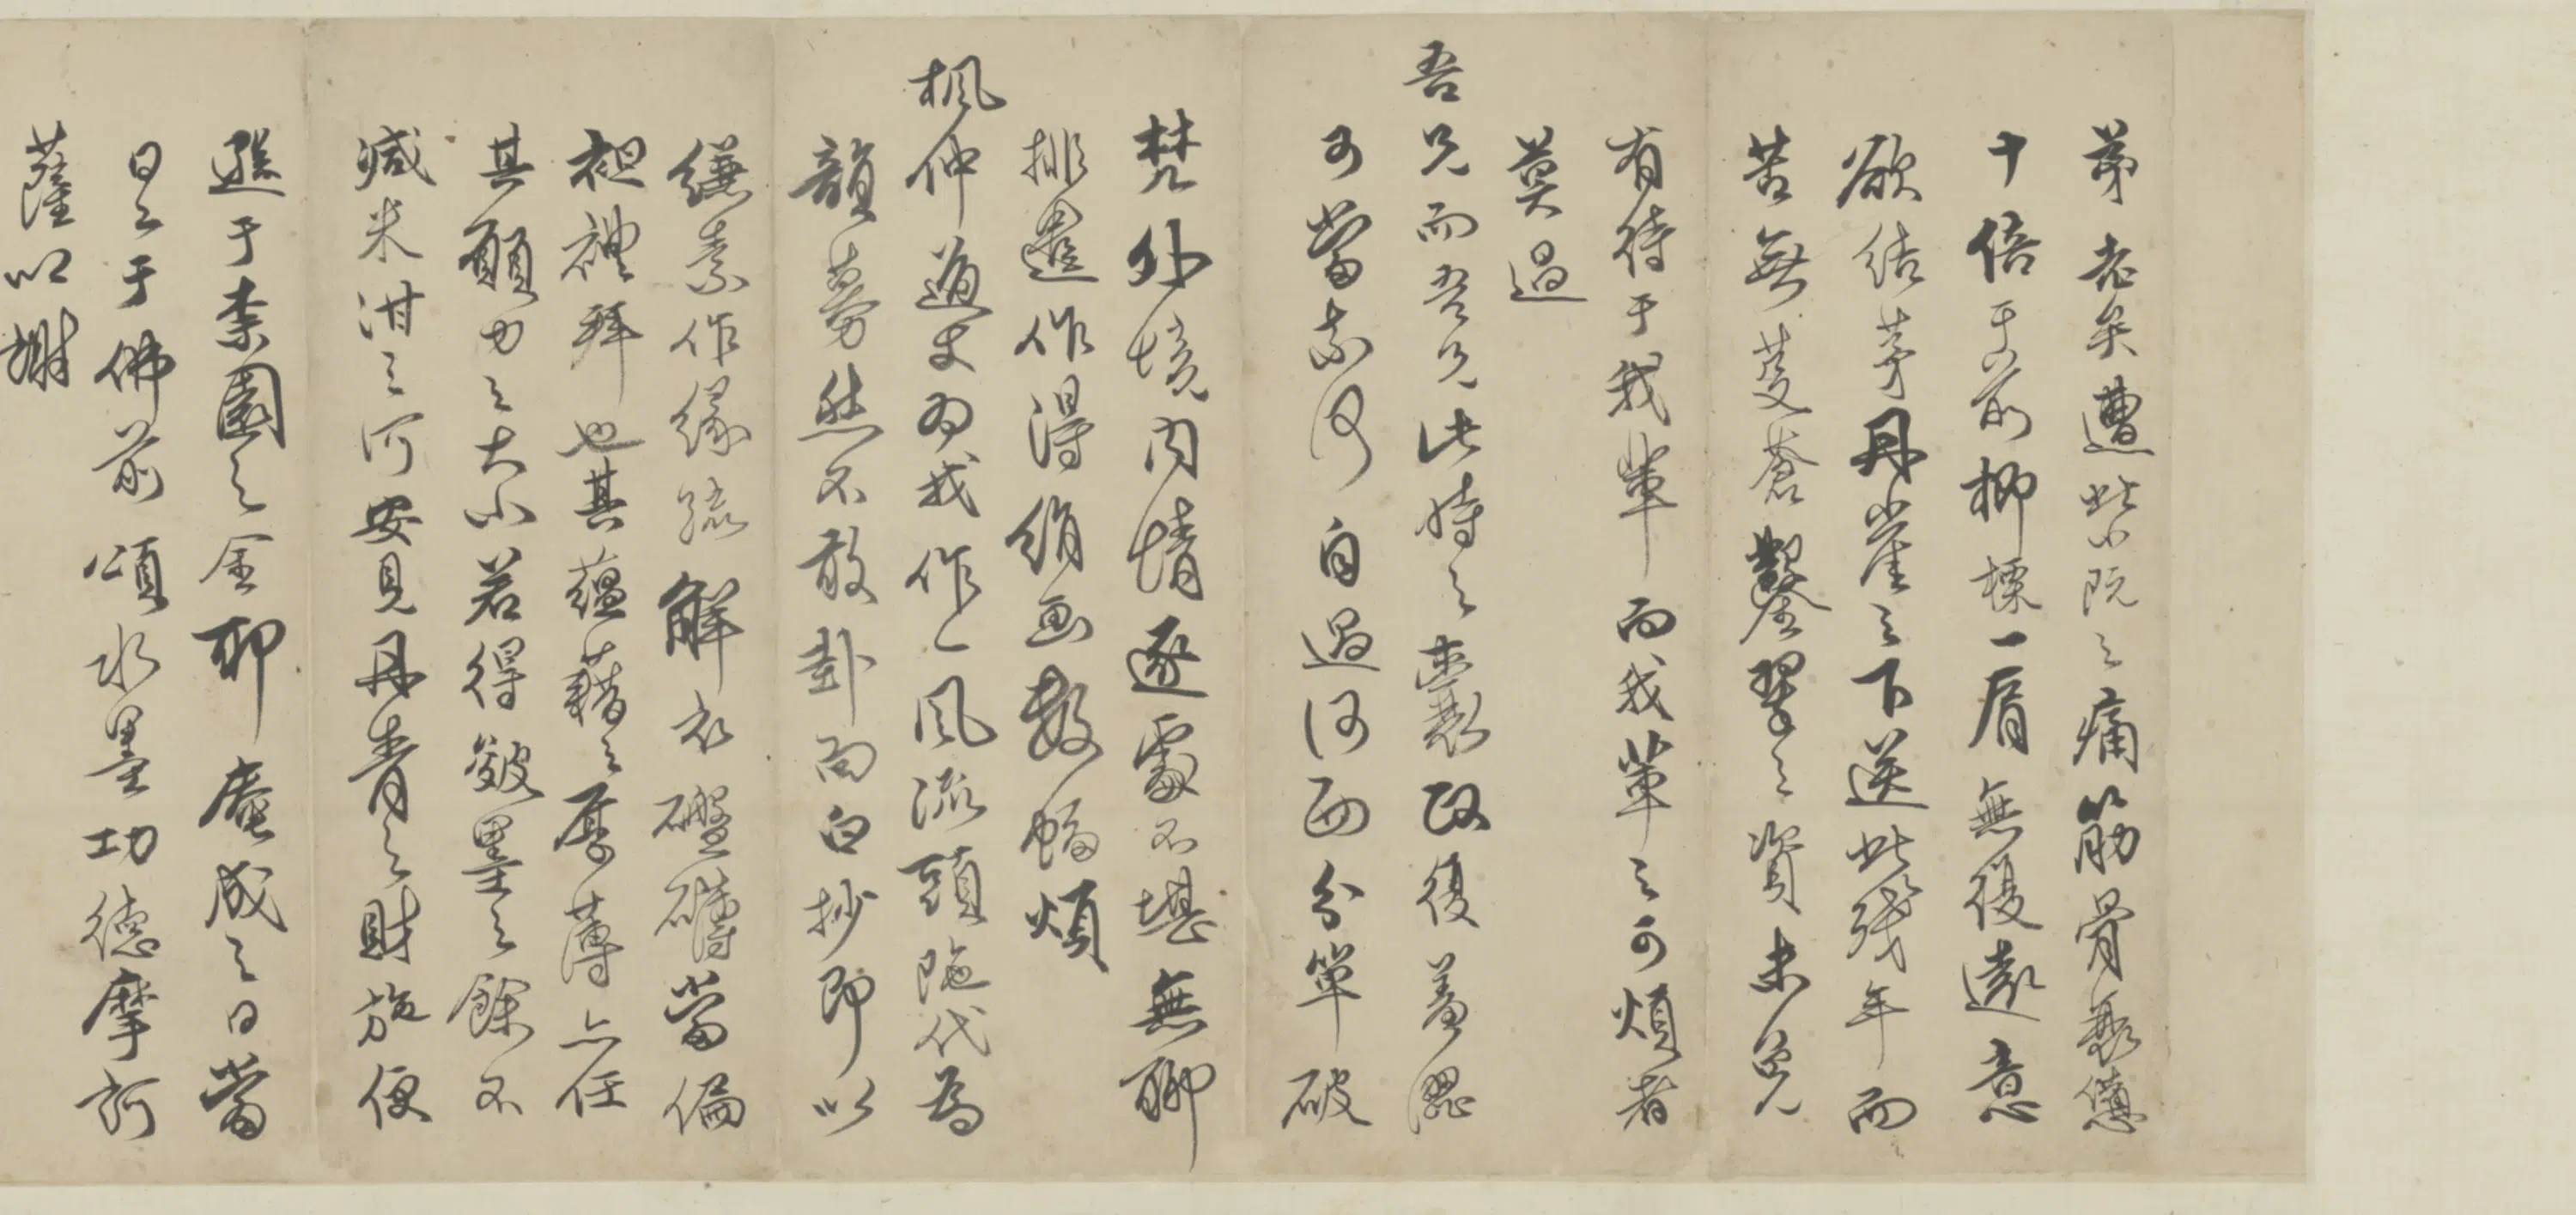 弟老矣遭此既之痛筋骨衰憊
十倍于前柳標一肩無復遠意
欲結茅丹崖之下送此殘年而
苦無葼蒼鑿翠之資未免
有待于我輩而我輩之可煩者
莫過
吾兄而吾兄此時之囊政復羞澀
可當奈何自過河西分單破
焚外境內情逐處不堪無聊
排遣作得絹画數幅煩
楓仲道丈為我作一風流頭陀代為
韻募然不敢卦而白抄即以
縑素作緣疏解衣礴當偏
袒禮拜也其蘊藉之厚薄亦任
其願力之大小若得皴墨之餘不
減米汁之河安見丹青之財施便
遜于柰園之金耶庵成之日當
日日于佛前頌水墨功德摩訶
薩以謝